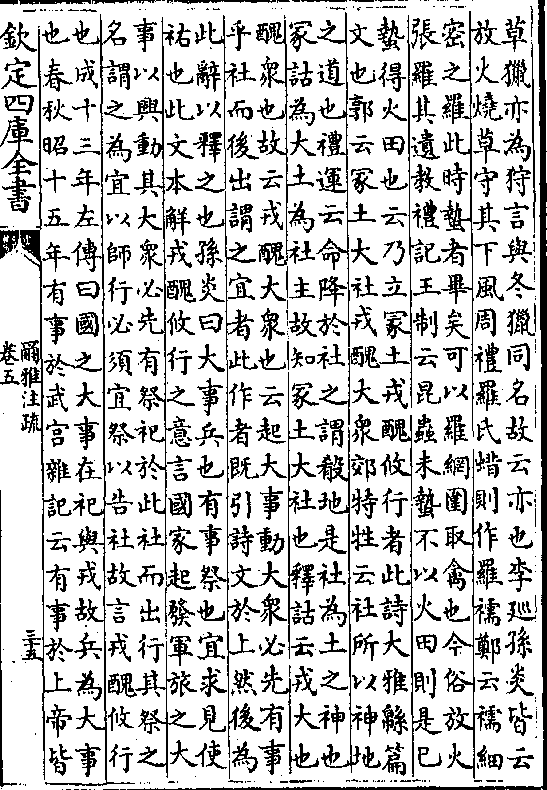 草獵亦為狩言與冬獵同名故云亦也李廵孫炎皆云
放火燒草守其下風周禮羅氏蜡則作羅襦鄭云襦細
密之羅此時蟄者畢矣可以羅網圍取禽也今俗放火
張羅其遺教禮記王制云昆蟲未蟄不以火田則是已
蟄得火田也云乃立冢土戎醜攸行者此詩大雅緜篇
文也郭云冢土大社戎醜大衆郊特牲云社所以神地
之道也禮運云命降於社之謂殽地是社為土之神也
冢詁為大土為社主故知冢土大社也釋詁云戎大也
醜衆也故云戎醜大衆也云起大事動大衆必先有事
乎社而後出謂之宜者此作者既引詩文於上然後為
此辭以釋之也孫炎曰大事兵也有事祭也宜求見使
祐也此文本解戎醜攸行之意言國家起發軍旅之大
事以興動其大衆必先有祭祀於此社而出行其祭之
名謂之為宜以師行必須宜祭以告社故言戎醜攸行
也成十三年左傳曰國之大事在祀與戎故兵為大事
也春秋昭十五年有事於武宫雜記云有事於上帝皆
欽定四庫全書
爾雅注疏
卷五
三五